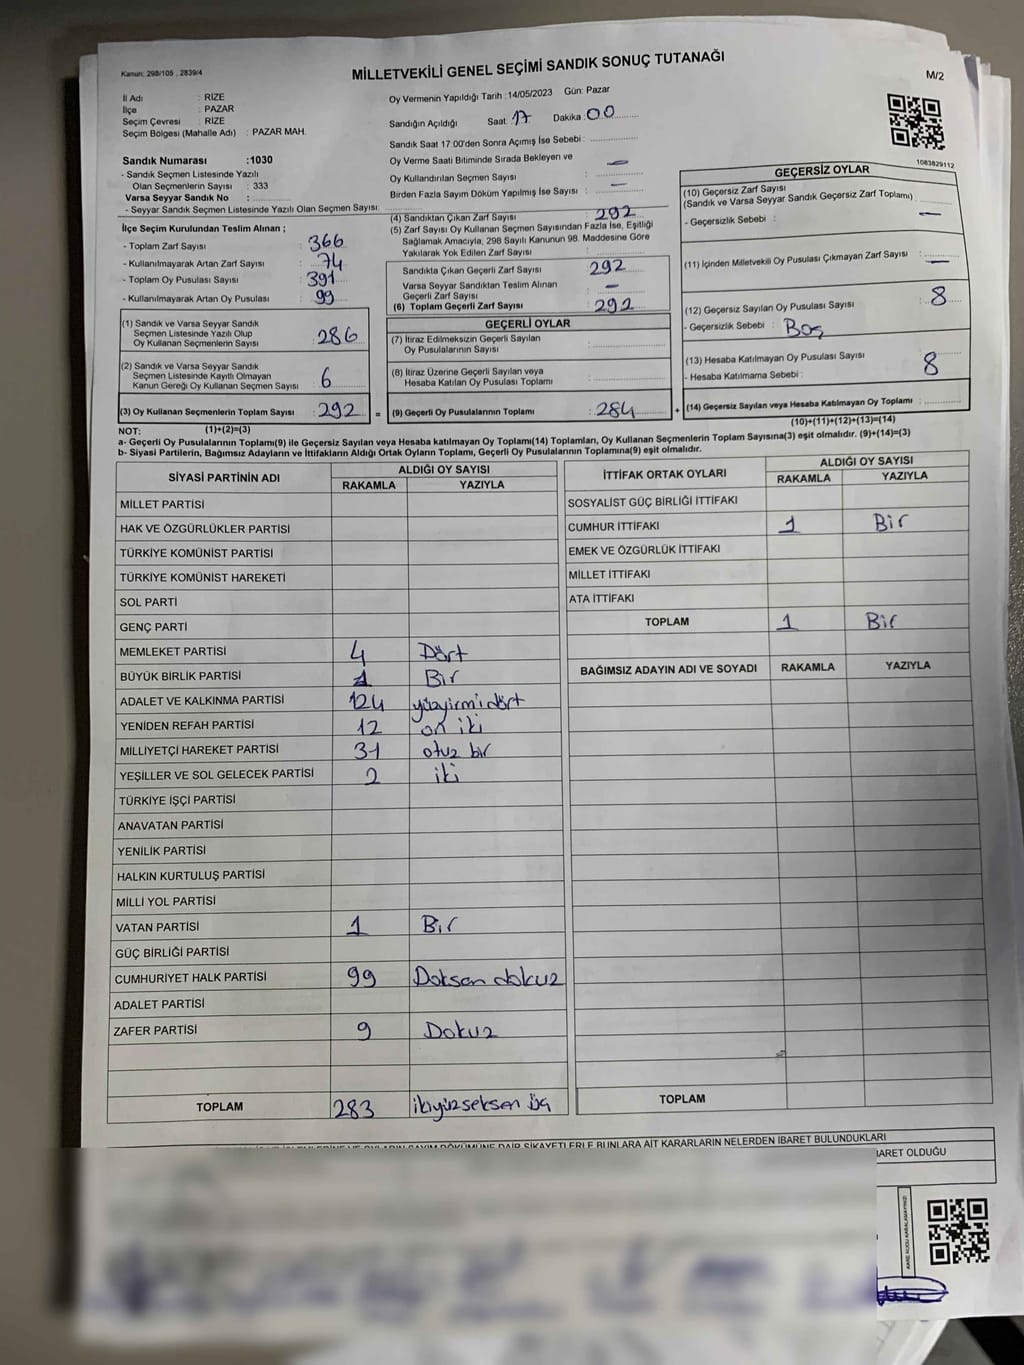 Kanun: 298/105 , 2839/4
MİLLETVEKİLİ GENEL SEÇİMİ SANDIK SONUÇ TUTANAĞI
M/2
İl Adı : RİZE
İlçe : PAZAR
Seçim Çevresi : RİZE
Seçim Bölgesi (Mahalle Adı) : PAZAR MAH.
Sandık Numarası :1030
- Sandık Seçmen Listesinde Yazılı
Olan Seçmenlerin Sayısı : 333
Varsa Seyyar Sandık No :
- Seyyar Sandık Seçmen Listesinde Yazılı Olan Seçmen Sayısı:
Oy Vermenin Yapıldığı Tarih :14/05/2023 Gün: Pazar
Sandığın Açıldığı Saat: 17 Dakika: 00
Sandık Saat 17.00'den Sonra Açımış İse Sebebi :
Oy Verme Saati Bitiminde Sırada Bekleyen ve
Oy Kullandırılan Seçmen Sayısı : —
Birden Fazla Sayım Döküm Yapılmış İse Sayısı : —
1083829112
İlçe Seçim Kurulundan Teslim Alınan ;
- Toplam Zarf Sayısı : 366
- Kullanılmayarak Artan Zarf Sayısı : 74
- Toplam Oy Pusulası Sayısı : 391
- Kullanılmayarak Artan Oy Pusulası : 99
(1) Sandık ve Varsa Seyyar Sandık
Seçmen Listesinde Yazılı Olup
Oy Kullanan Seçmenlerin Sayısı : 286
(2) Sandık ve Varsa Seyyar Sandık
Seçmen Listesinde Kayıtlı Olmayan
Kanun Gereği Oy Kullanan Seçmen Sayısı : 6
(3) Oy Kullanan Seçmenlerin Toplam Sayısı : 292 =
(1)+(2)=(3)
(4) Sandıktan Çıkan Zarf Sayısı : 292
(5) Zarf Sayısı Oy Kullanan Seçmen Sayısından Fazla İse, Eşitliği
Sağlamak Amacıyla, 298 Sayılı Kanunun 98. Maddesine Göre
Yakılarak Yok Edilen Zarf Sayısı :
Sandıkta Çıkan Geçerli Zarf Sayısı : 292
Varsa Seyyar Sandıktan Teslim Alınan
Geçerli Zarf Sayısı : —
(6) Toplam Geçerli Zarf Sayısı : 292
GEÇERLİ OYLAR
(7) İtiraz Edilmeksizin Geçerli Sayılan
Oy Pusulalarının Sayısı :
(8) İtiraz Üzerine Geçerli Sayılan veya
Hesaba Katılan Oy Pusulası Toplamı :
(9) Geçerli Oy Pusulalarının Toplamı : 284 +
GEÇERSİZ OYLAR
(10) Geçersiz Zarf Sayısı
(Sandık ve Varsa Seyyar Sandık Geçersiz Zarf Toplamı) :
- Geçersizlik Sebebi : —
(11) İçinden Milletvekili Oy Pusulası Çıkmayan Zarf Sayısı : —
(12) Geçersiz Sayılan Oy Pusulası Sayısı : 8
- Geçersizlik Sebebi : Boş
(13) Hesaba Katılmayan Oy Pusulası Sayısı : 8
- Hesaba Katılmama Sebebi :
(14) Geçersiz Sayılan veya Hesaba Katılmayan Oy Toplamı :
(10)+(11)+(12)+(13)=(14)
NOT:
a- Geçerli Oy Pusulalarının Toplamı(9) ile Geçersiz Sayılan veya Hesaba katılmayan Oy Toplamı(14) Toplamları, Oy Kullanan Seçmenlerin Toplam Sayısına(3) eşit olmalıdır. (9)+(14)=(3)
b- Siyasi Partilerin, Bağımsız Adayların ve İttifakların Aldığı Ortak Oyların Toplamı, Geçerli Oy Pusulalarının Toplamına(9) eşit olmalıdır.
SİYASİ PARTİNİN ADI ALDIĞI OY SAYISI
RAKAMLA YAZIYLA
MİLLET PARTİSİ
HAK VE ÖZGÜRLÜKLER PARTİSİ
TÜRKİYE KOMÜNİST PARTİSİ
TÜRKİYE KOMÜNİST HAREKETİ
SOL PARTİ
GENÇ PARTİ
MEMLEKET PARTİSİ 4 Dört
BÜYÜK BİRLİK PARTİSİ 1 Bir
ADALET VE KALKINMA PARTİSİ 124 yüzyirmidört
YENİDEN REFAH PARTİSİ 12 on iki
MİLLİYETÇİ HAREKET PARTİSİ 31 otuz bir
YEŞİLLER VE SOL GELECEK PARTİSİ 2 iki
TÜRKİYE İŞÇİ PARTİSİ
ANAVATAN PARTİSİ
YENİLİK PARTİSİ
HALKIN KURTULUŞ PARTİSİ
MİLLİ YOL PARTİSİ
VATAN PARTİSİ 1 Bir
GÜÇ BİRLİĞİ PARTİSİ
CUMHURİYET HALK PARTİSİ 99 Doksan dokuz
ADALET PARTİSİ
ZAFER PARTİSİ 9 Dokuz
TOPLAM 283 ikiyüzseksen üç
İTTİFAK ORTAK OYLARI ALDIĞI OY SAYISI
RAKAMLA YAZIYLA
SOSYALİST GÜÇ BİRLİĞİ İTTİFAKI
CUMHUR İTTİFAKI 1 Bir
EMEK VE ÖZGÜRLÜK İTTİFAKI
MİLLET İTTİFAKI
ATA İTTİFAKI
TOPLAM 1 Bir
BAĞIMSIZ ADAYIN ADI VE SOYADI RAKAMLA YAZIYLA
TOPLAM
DAİR ŞİKAYETLERLE BUNLARA AİT KARARLARIN NELERDEN İBARET BULUNDUKLARI
OLDUĞU